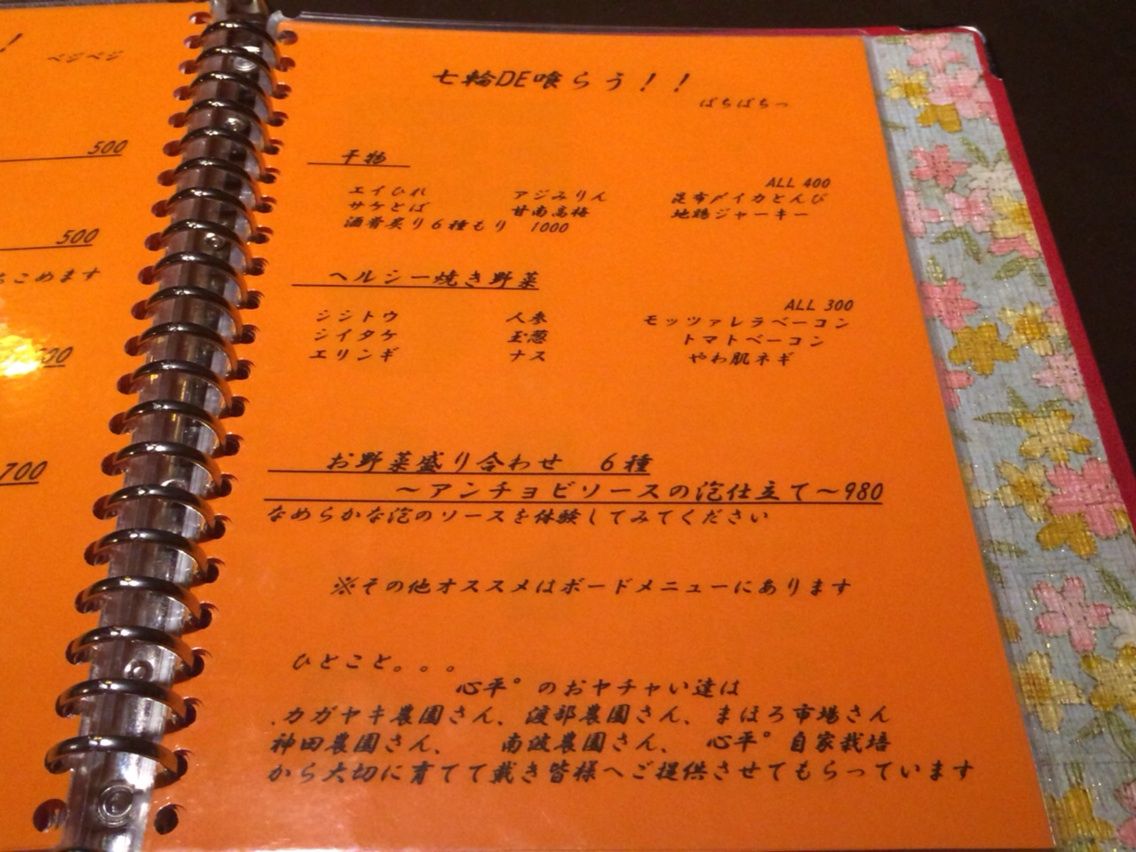 ！
ペジペジ
500
500
ちこめます
700
七輪DE喰らう！！
ぱちぱちっ
干物
ALL 400
エイひれ アジみりん 昆布〆イカとんび
サケとば 甘南高梅 地鶏ジャーキー
酒肴炙り６種もり 1000
ヘルシー焼き野菜
ALL 300
シシトウ 人参 モッツァレラベーコン
シイタケ 玉葱 トマトベーコン
エリンギ ナス やわ肌ネギ
お野菜盛り合わせ ６種
～アンチョビソースの泡仕立て～980
なめらかな泡のソースを体験してみてください
※その他オススメはボードメニューにあります
ひとこと。。。
心平°のおヤチャい達は
.カガヤキ農園さん、渡部農園さん、まほろ市場さん
神田農園さん、 南波農園さん、 心平°自家栽培
から大切に育てて戴き皆様へご提供させてもらっています